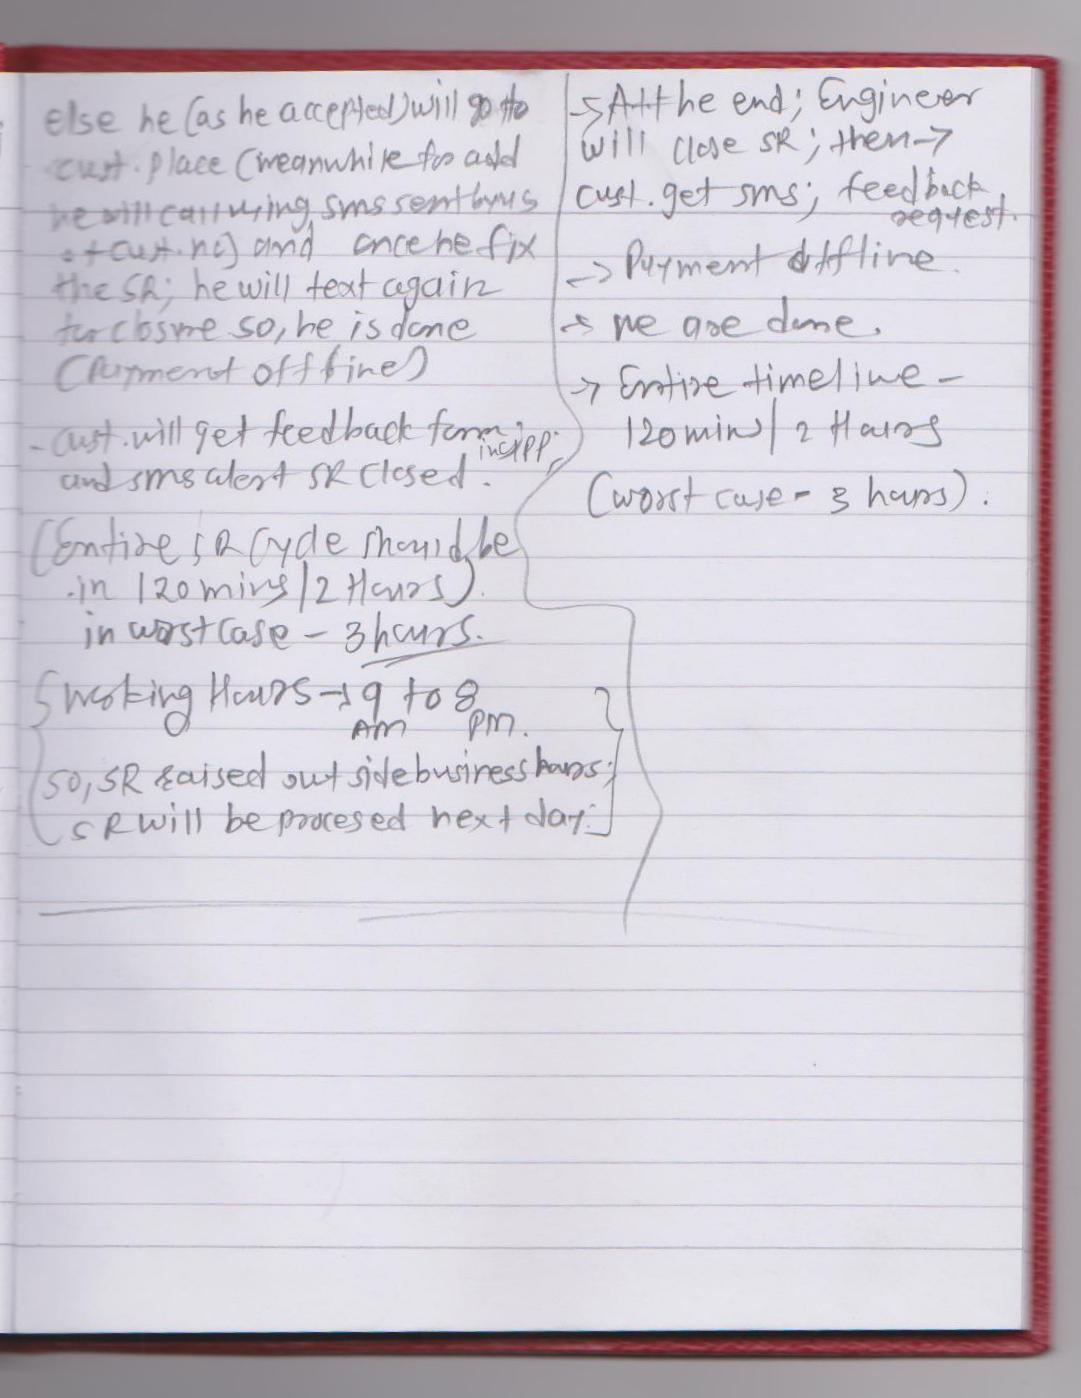 else he (as he accepted) will go to
cust. place (meanwhile for add
he will call using sms sent by us
of cust. no) and once he fix
the SR; he will text again
for closure so, he is done
(Payment offline)
- cust. will get feedback form; in APP.
and sms alert SR closed.
(Entire SR Cycle should be
in 120 mins / 2 Hours).
in worst case - 3 hours.
{ Working Hours → 9 to 8 }
AM PM.
so, SR raised out side business hours;
SR will be procesed next day.
→ At the end; Engineer
will close SR; then →
cust. get sms; feedback
request.
→ Payment offline.
→ we are done.
→ Entire timeline -
120 mins / 2 Hours
(worst case - 3 hours).